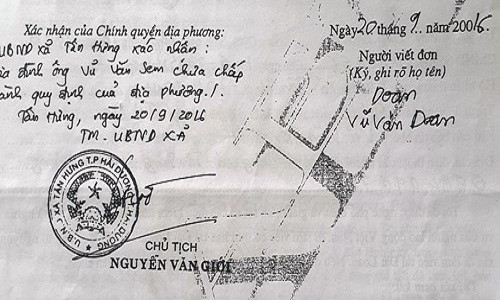 Xác nhận của Chính quyền địa phương:
UBND xã Tân Hưng xác nhận:
đình ông Vũ Văn Sem chưa chấp
hành quy định của địa phương./.
Tân Hưng, ngày 20/9/2016
TM. UBND XÃ
U.B.N.D XÃ TÂN HƯNG T.P HẢI DƯƠNG T. HẢI DƯƠNG
CHỦ TỊCH
NGUYỄN VĂN GIỚI
Ngày 20 tháng 9 năm 2006
Người viết đơn
(Ký, ghi rõ họ tên)
Doan
Vũ Văn Doan